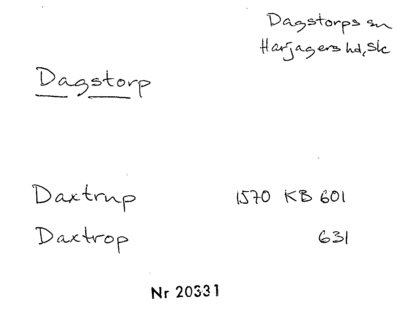 Dagstorps sn
Harjagers hd, Sk
Dagstorp
Daxtrup 1570 KB 601
Daxtrop 631
Nr 20331